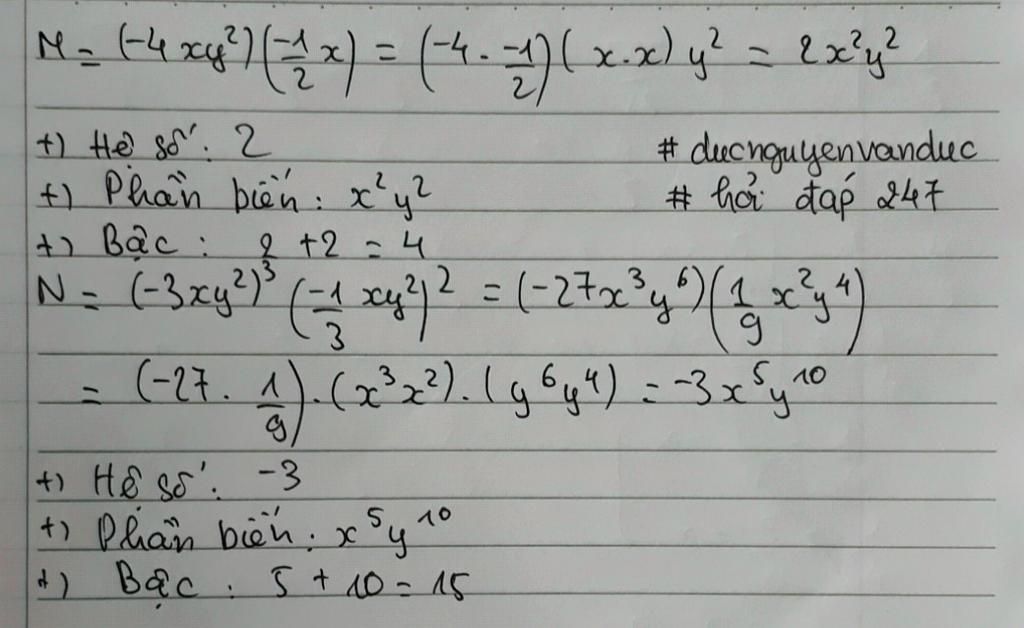 M = (-4xy²)(-1/2 x) = (-4 . -1/2)(x.x)y² = 2x²y²
+) Hệ số: 2 # ducnguyenvanduc
+) Phần biến: x²y² # hỏi đáp 247
+) Bậc: 2 + 2 = 4
N = (-3xy²)³ (-1/3 xy²)² = (-27x³y⁶)(1/9 x²y⁴)
= (-27 . 1/9).(x³x²).(y⁶y⁴) = -3x⁵y¹⁰
+) Hệ số: -3
+) Phần biến: x⁵y¹⁰
+) Bậc: 5 + 10 = 15